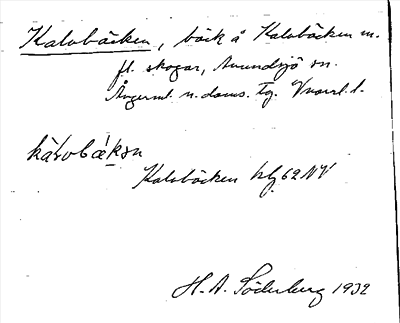 Kalvbäcken, bäck å Kalvbäcken m.
fl. skogar, Anundsjö sn.
Ångerml. n. doms. tg. Vnorrl. l.
kàlvbækən
Kalvbäcken kbl 62 NV
H. A. Söderberg 1932